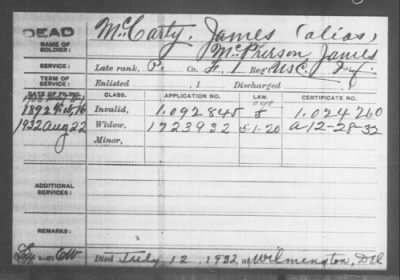 DEAD
McCarty, James (alias)
McPherson James
NAME OF SOLDIER:
SERVICE: Late rank, Pt. Co. F, 1 Reg't USC. Inf.
TERM OF SERVICE: Enlisted , 1 Discharged , 1
DATE OF FILING. CLASS. APPLICATION NO. LAW. CERTIFICATE NO.
1892 Feb 16 Invalid, 1.092845 1.024260
1932 Aug 22 Widow, 1723932 5-1-20 a 12-28-32
Minor,
ADDITIONAL SERVICES:
REMARKS:
Died July 12, 1932, at Wilmington, Del